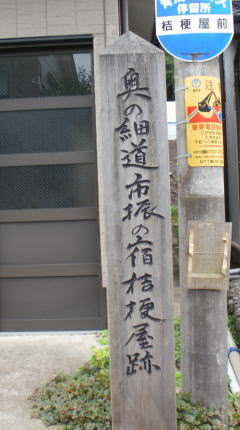 奥の細道市振の宿桔梗屋跡
停留所
桔梗屋前